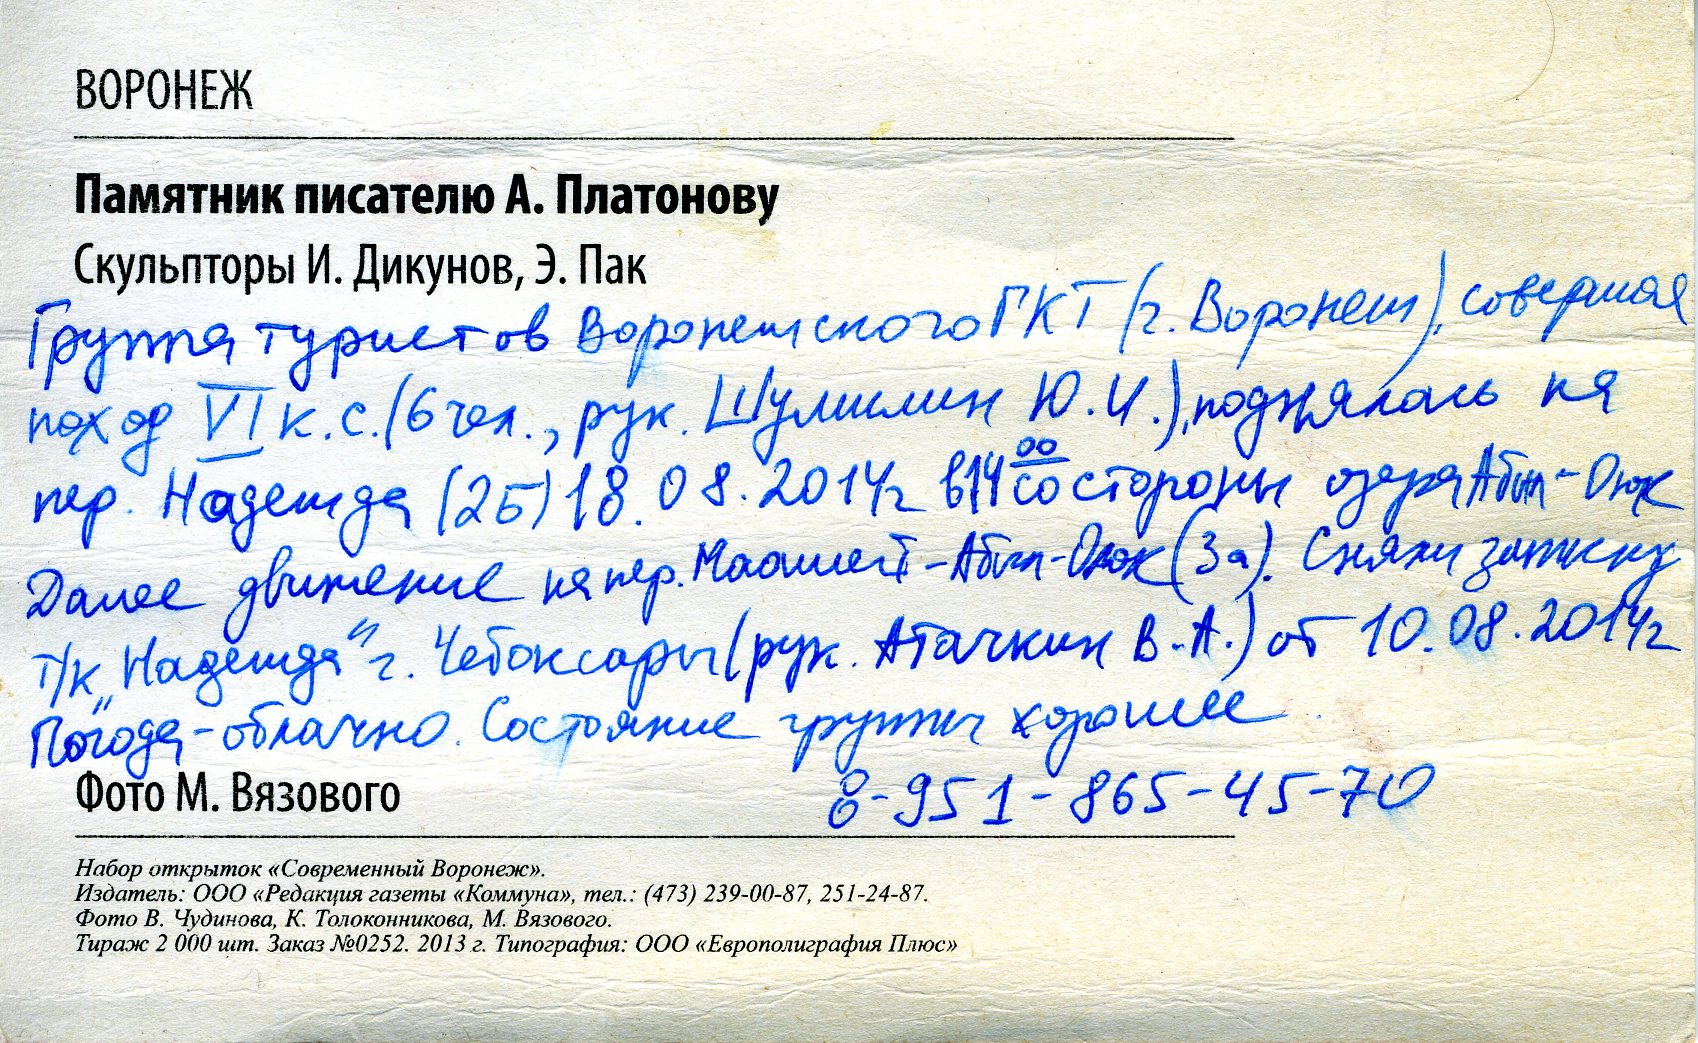 ВОРОНЕЖ
Памятник писателю А. Платонову
Скульпторы И. Дикунов, Э. Пак
Группа туристов Воронежского ГКТ (г. Воронеж), совершая
поход VI к.с. (6 чел., рук. Шулишин Ю.И.), поднялась на
пер. Надежда (2Б) 18.08.2014г в 14⁰⁰ со стороны озера Абыл-Оюк
Далее движение на пер. Маашей-Абыл-Оюк (3а). Сняли записку
т/к „Надежда" г. Чебоксары (рук. Атачкин В.А.) от 10.08.2014г
Погода - облачно. Состояние группы хорошее.
Фото М. Вязового
8-951-865-45-70
Набор открыток «Современный Воронеж».
Издатель: ООО «Редакция газеты «Коммуна», тел.: (473) 239-00-87, 251-24-87.
Фото В. Чудинова, К. Толоконникова, М. Вязового.
Тираж 2 000 шт. Заказ №0252. 2013 г. Типография: ООО «Европолиграфия Плюс»